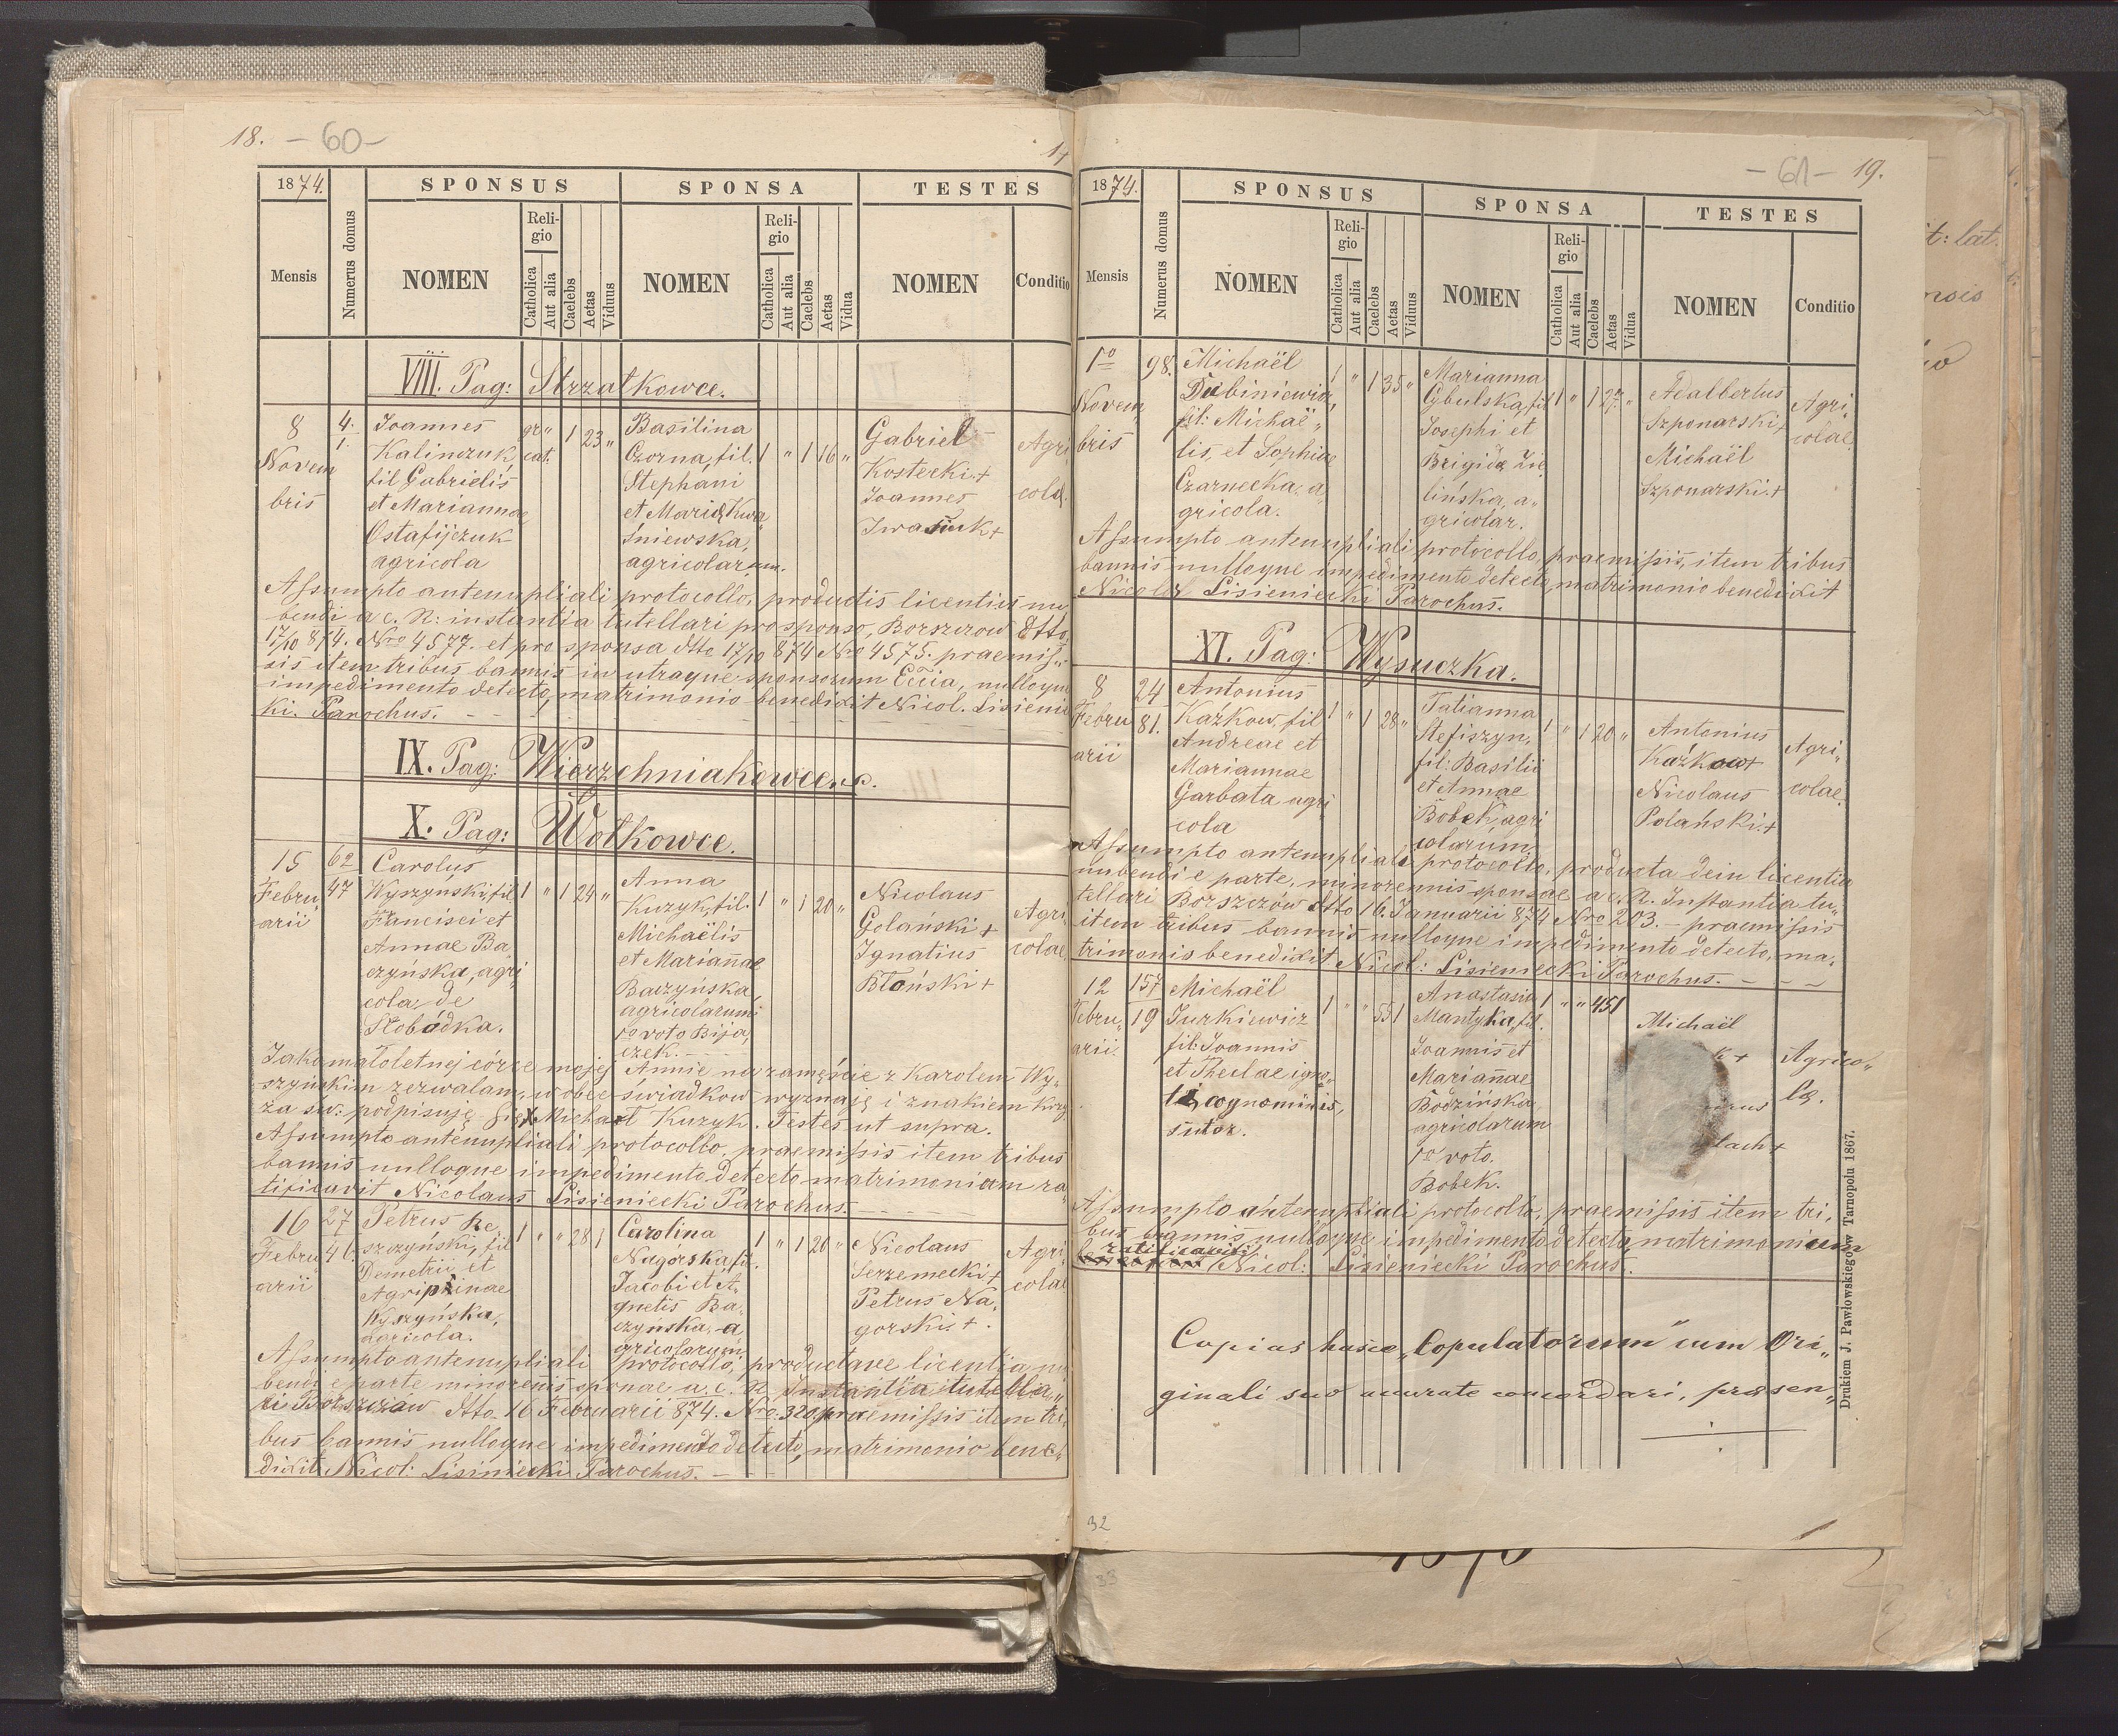 18. – 60 –
1874.
SPONSUS
SPONSA
TESTES
Mensis
Numerus domus
NOMEN
Religio
Catholica
Aut alia
Caelebs
Aetas
Viduus
NOMEN
Religio
Catholica
Aut alia
Caelebs
Aetas
Vidua
NOMEN
Conditio
VIII. Pag: Strzałkowce.
8 Novembris
4. 1.
Joannes
Kalinczuk
fil Gabrielis
et Mariannae
Ostafijczuk
agricola
gr„ cat. 1 23 „
Basilina
Czorna, fil.
Stephani
et Mariae Kwa„
śniewska,
agricolarum.
1 „ 1 16 „
Gabriel
Kostecki +
Joannes
Iwasiuk +
Agri
colae
Assumpto antenupliali protocollo, productis licentiis nu„
bendi a c. R: instantia tutellari pro sponso, Borszczow dtto
17/10 874. Nro 4577. et pro sponsa dtto 17/10 874 Nro 4575. praemis„
sis item tribus bannis in utraque sponsorum Eccia, nulloque
impedimento detecto, matrimonio benedixit Nicol. Lisienic
ki. Parochus.
IX. Pag: Wierzchniakowce.
X. Pag: Wołkowce.
15 Februarii
62 47
Carolus
Wyszyński, fil
Francisci et
Annae Ba„
czyńska, agri„
cola, de
Słobódka.
1 „ 1 24 „
Anna
Kuzyk, fil.
Michaëlis
et Mariannae
Baczyńska,
agricolarum
1o voto Bija„
czek.
1 „ 1 20 „
Nicolaus
Golański +
Ignatius
Błoński +
Agri
colae
Jako małoletnej córce mojej Annie na zamęście z Karolem Wy„
szyńskim zezwalam, w obec świadkow wyznaję i znakiem krzy
ża św: podpisuję się X Michael Kuzyk. Testes ut supra.
Assumpto antenupliali protocollo, praemissis item tribus
bannis nulloque impedimento detecto matrimonium ra„
tificavit Nicolaus Lisieniecki Parochus.
16 Februarii
27 40
Petrus Re„
szczyński, fil
Demetrii et
Agripinae
Kyszyńska,
agricola.
1 „ „ 28 1
Carolina
Nagorska, fil.
Jacobi et A„
gnetis Ba„
czyńska, a„
gricolarum
1 „ 1 20 „
Nicolaus
Serzemecki +
Petrus Na„
gorski. +.
Agri
colae
Assumpto antenupliali protocollo, productaee licentia nu
bendi e parte minorennis sponae a. c. R Instantia tutella„
ri Borszczow dtto 16 Februarii 874. Nro. 320. praemissis item tri
bus bannis nulloque impedimento detecto, matrimonio bene„
dixit Nicol: Lisiniecki Parochus.
– 61 – 19.
1874.
SPONSUS
SPONSA
TESTES
Mensis
Numerus domus
NOMEN
Religio
Catholica
Aut alia
Caelebs
Aetas
Viduus
NOMEN
Religio
Catholica
Aut alia
Caelebs
Aetas
Vidua
NOMEN
Conditio
1o Novembris
98.
Michaël
Dubiniewicz,
fil: Michaë„
lis, et Sophiae
Czarnecka, a„
gricola.
1 „ 1 35 „
Marianna
Cybulska, fil
Josephi et
Brigidae Zie
lińska, a„
gricolar.
1 „ 1 27. „
Adalbertus
Szponarski, +
Michaël
Szponarski. +
Agri
colae
Assumpto antenupliali protocollo, praemissis, item tribus
bannis nulloque impedimento detecto, matrimonio benedixit
Nicol: Lisieniecki Parochus.
XI. Pag: Wysuczka.
8 Februarii
24 81.
Antonius
Każkow, fil
Andreae et
Mariannae
Garbata agri
cola
1 „ 1 28 „
Tatianna
Stefiszyn,
fil: Basilii
et Annae
Bobek, agri
colarum.
1 „ 1 20 „
Antonius
Każkow +
Nicolaus
Polański. +
Agri„
colae
Assumpto antenupliali protocollo, producta dein licentia
nubendi e parte, minorennis sponsae a c. R. Instantia tu„
tellari Borszczów dtto 16. Januarii 874 Nro 203. – praemissis
item tribus bannis nulloque impedimento detecto, ma„
trimonio benedixit Nicol: Lisieniecki Parochus.
12 Februarii.
157 19
Michaël
Jurkiewicz
fil: Joannis
et Theclae igno„
ti cognominis,
sutor.
1 „ „ 55 1
Anastasia
Mantyka, fil.
Joannis et
Mariannae
Bodzińska,
agricolarum
1o voto.
Bobek.
1 „ „ 45 1
Michaël
Agrico„
lae.
Assumpto antenupliali protocollo, praemissis item tri„
bus bannis nulloque impedimento detecto, matrimonium
ratificavit Nicol: Lisieniecki Parochus.
Copias hasce „Copulatorum" cum Ori„
ginali suo accurate concordari, præsen„
Drukiem J. Pawłowskiego w Tarnopolu 1867.
32
33